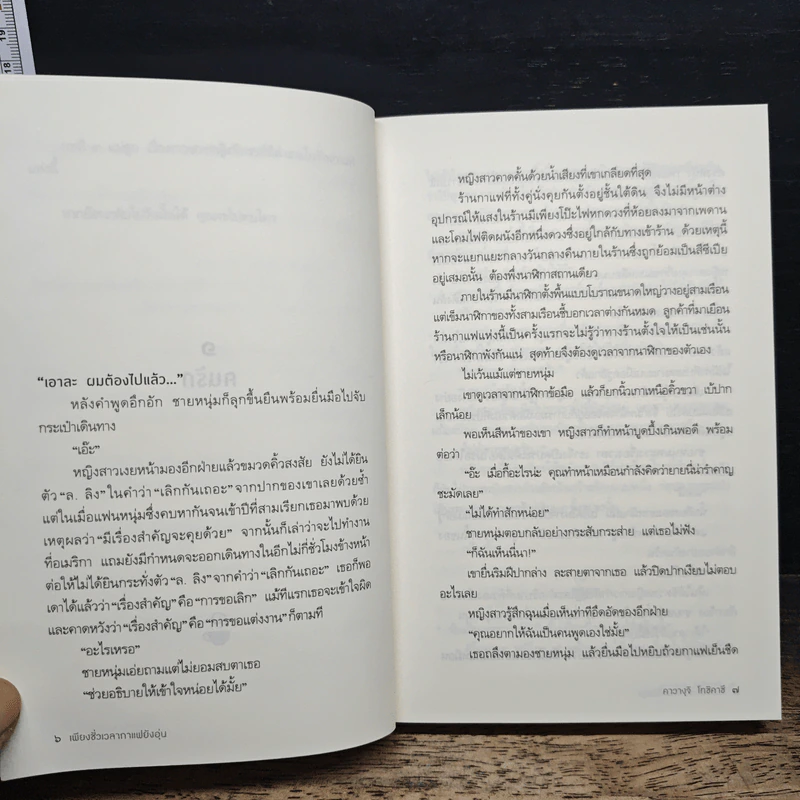 19
18
"เอาละ ผมต้องไปแล้ว..."
หลังคำพูดอึกอัก ชายหนุ่มก็ลุกขึ้นยืนพร้อมยื่นมือไปจับ
กระเป๋าเดินทาง
"เอ๊ะ"
หญิงสาวเงยหน้ามองอีกฝ่ายแล้วขมวดคิ้วสงสัย ยังไม่ได้ยิน
ตัว "ล. ลิง" ในคำว่า "เลิกกันเถอะ" จากปากของเขาเลยด้วยซ้ำ
แต่ในเมื่อแฟนหนุ่มซึ่งคบหากันจนเข้าปีที่สามเรียกเธอมาพบด้วย
เหตุผลว่า "มีเรื่องสำคัญจะคุยด้วย" จากนั้นก็เล่าว่าจะไปทำงาน
ที่อเมริกา แถมยังมีกำหนดจะออกเดินทางในอีกไม่กี่ชั่วโมงข้างหน้า
ต่อให้ไม่ได้ยินกระทั่งตัว "ล. ลิง" จากคำว่า "เลิกกันเถอะ" เธอก็พอ
เดาได้แล้วว่า "เรื่องสำคัญ" คือ "การขอเลิก" แม้ทีแรกเธอจะเข้าใจผิด
และคาดหวังว่า "เรื่องสำคัญ" คือ "การขอแต่งงาน" ก็ตามที
"อะไรเหรอ"
ชายหนุ่มเอ่ยถามแต่ไม่ยอมสบตาเธอ
"ช่วยอธิบายให้เข้าใจหน่อยได้มั้ย"
๖ เพียงชั่วเวลากาแฟยังอุ่น
หญิงสาวคาดคั้นด้วยน้ำเสียงที่เขาเกลียดที่สุด
ร้านกาแฟที่ทั้งคู่นั่งคุยกันตั้งอยู่ชั้นใต้ดิน จึงไม่มีหน้าต่าง
อุปกรณ์ให้แสงในร้านมีเพียงโป๊ะไฟหกดวงที่ห้อยลงมาจากเพดาน
และโคมไฟติดผนังอีกหนึ่งดวงซึ่งอยู่ใกล้กับทางเข้าร้าน ด้วยเหตุนี้
หากจะแยกแยะกลางวันกลางคืนภายในร้านซึ่งถูกย้อมเป็นสีซีเปีย
อยู่เสมอนั้น ต้องพึ่งนาฬิกาสถานเดียว
ภายในร้านมีนาฬิกาตั้งพื้นแบบโบราณขนาดใหญ่วางอยู่สามเรือน
แต่เข็มนาฬิกาของทั้งสามเรือนชี้บอกเวลาต่างกันหมด ลูกค้าที่มาเยือน
ร้านกาแฟแห่งนี้เป็นครั้งแรกจะไม่รู้ว่าทางร้านตั้งใจให้เป็นเช่นนั้น
หรือนาฬิกาพังกันแน่ สุดท้ายจึงต้องดูเวลาจากนาฬิกาของตัวเอง
ไม่เว้นแม้แต่ชายหนุ่ม
เขาดูเวลาจากนาฬิกาข้อมือ แล้วก็ยกนิ้วเกาเหนือคิ้วขวา เบ้ปาก
เล็กน้อย
พอเห็นสีหน้าของเขา หญิงสาวก็ทำหน้าบูดบึ้งเกินพอดี พร้อม
ต่อว่า
"อ๊ะ เมื่อกี้อะไรน่ะ คุณทำหน้าเหมือนกำลังคิดว่ายายนี่น่ารำคาญ
ชะมัดเลย"
"ไม่ได้ทำสักหน่อย"
ชายหนุ่มตอบกลับอย่างกระสับกระส่าย แต่เธอไม่ฟัง
"ก็ฉันเห็นนี่นา!"
เขายื่นริมฝีปากล่าง ละสายตาจากเธอ แล้วปิดปากเงียบไม่ตอบ
อะไรเลย
หญิงสาวรู้สึกฉุนเมื่อเห็นท่าทีอึดอัดของอีกฝ่าย
"คุณอยากให้ฉันเป็นคนพูดเองใช่มั้ย"
เธอถลึงตามองชายหนุ่ม แล้วยื่นมือไปหยิบถ้วยกาแฟเย็นชืด
คาวางุจิ โทชิคาซึ ๗